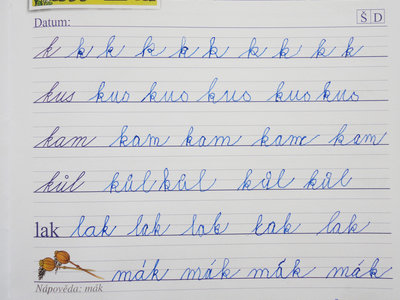 Datum: Š D
k k k k k k k k k k
kus kuo kuo kuo kuo kuo
kam kam kam kam kam
kůl kůl kůl kůl kůl
lak lak lak lak lak lak
mák mák mák mák
Nápověda: mák